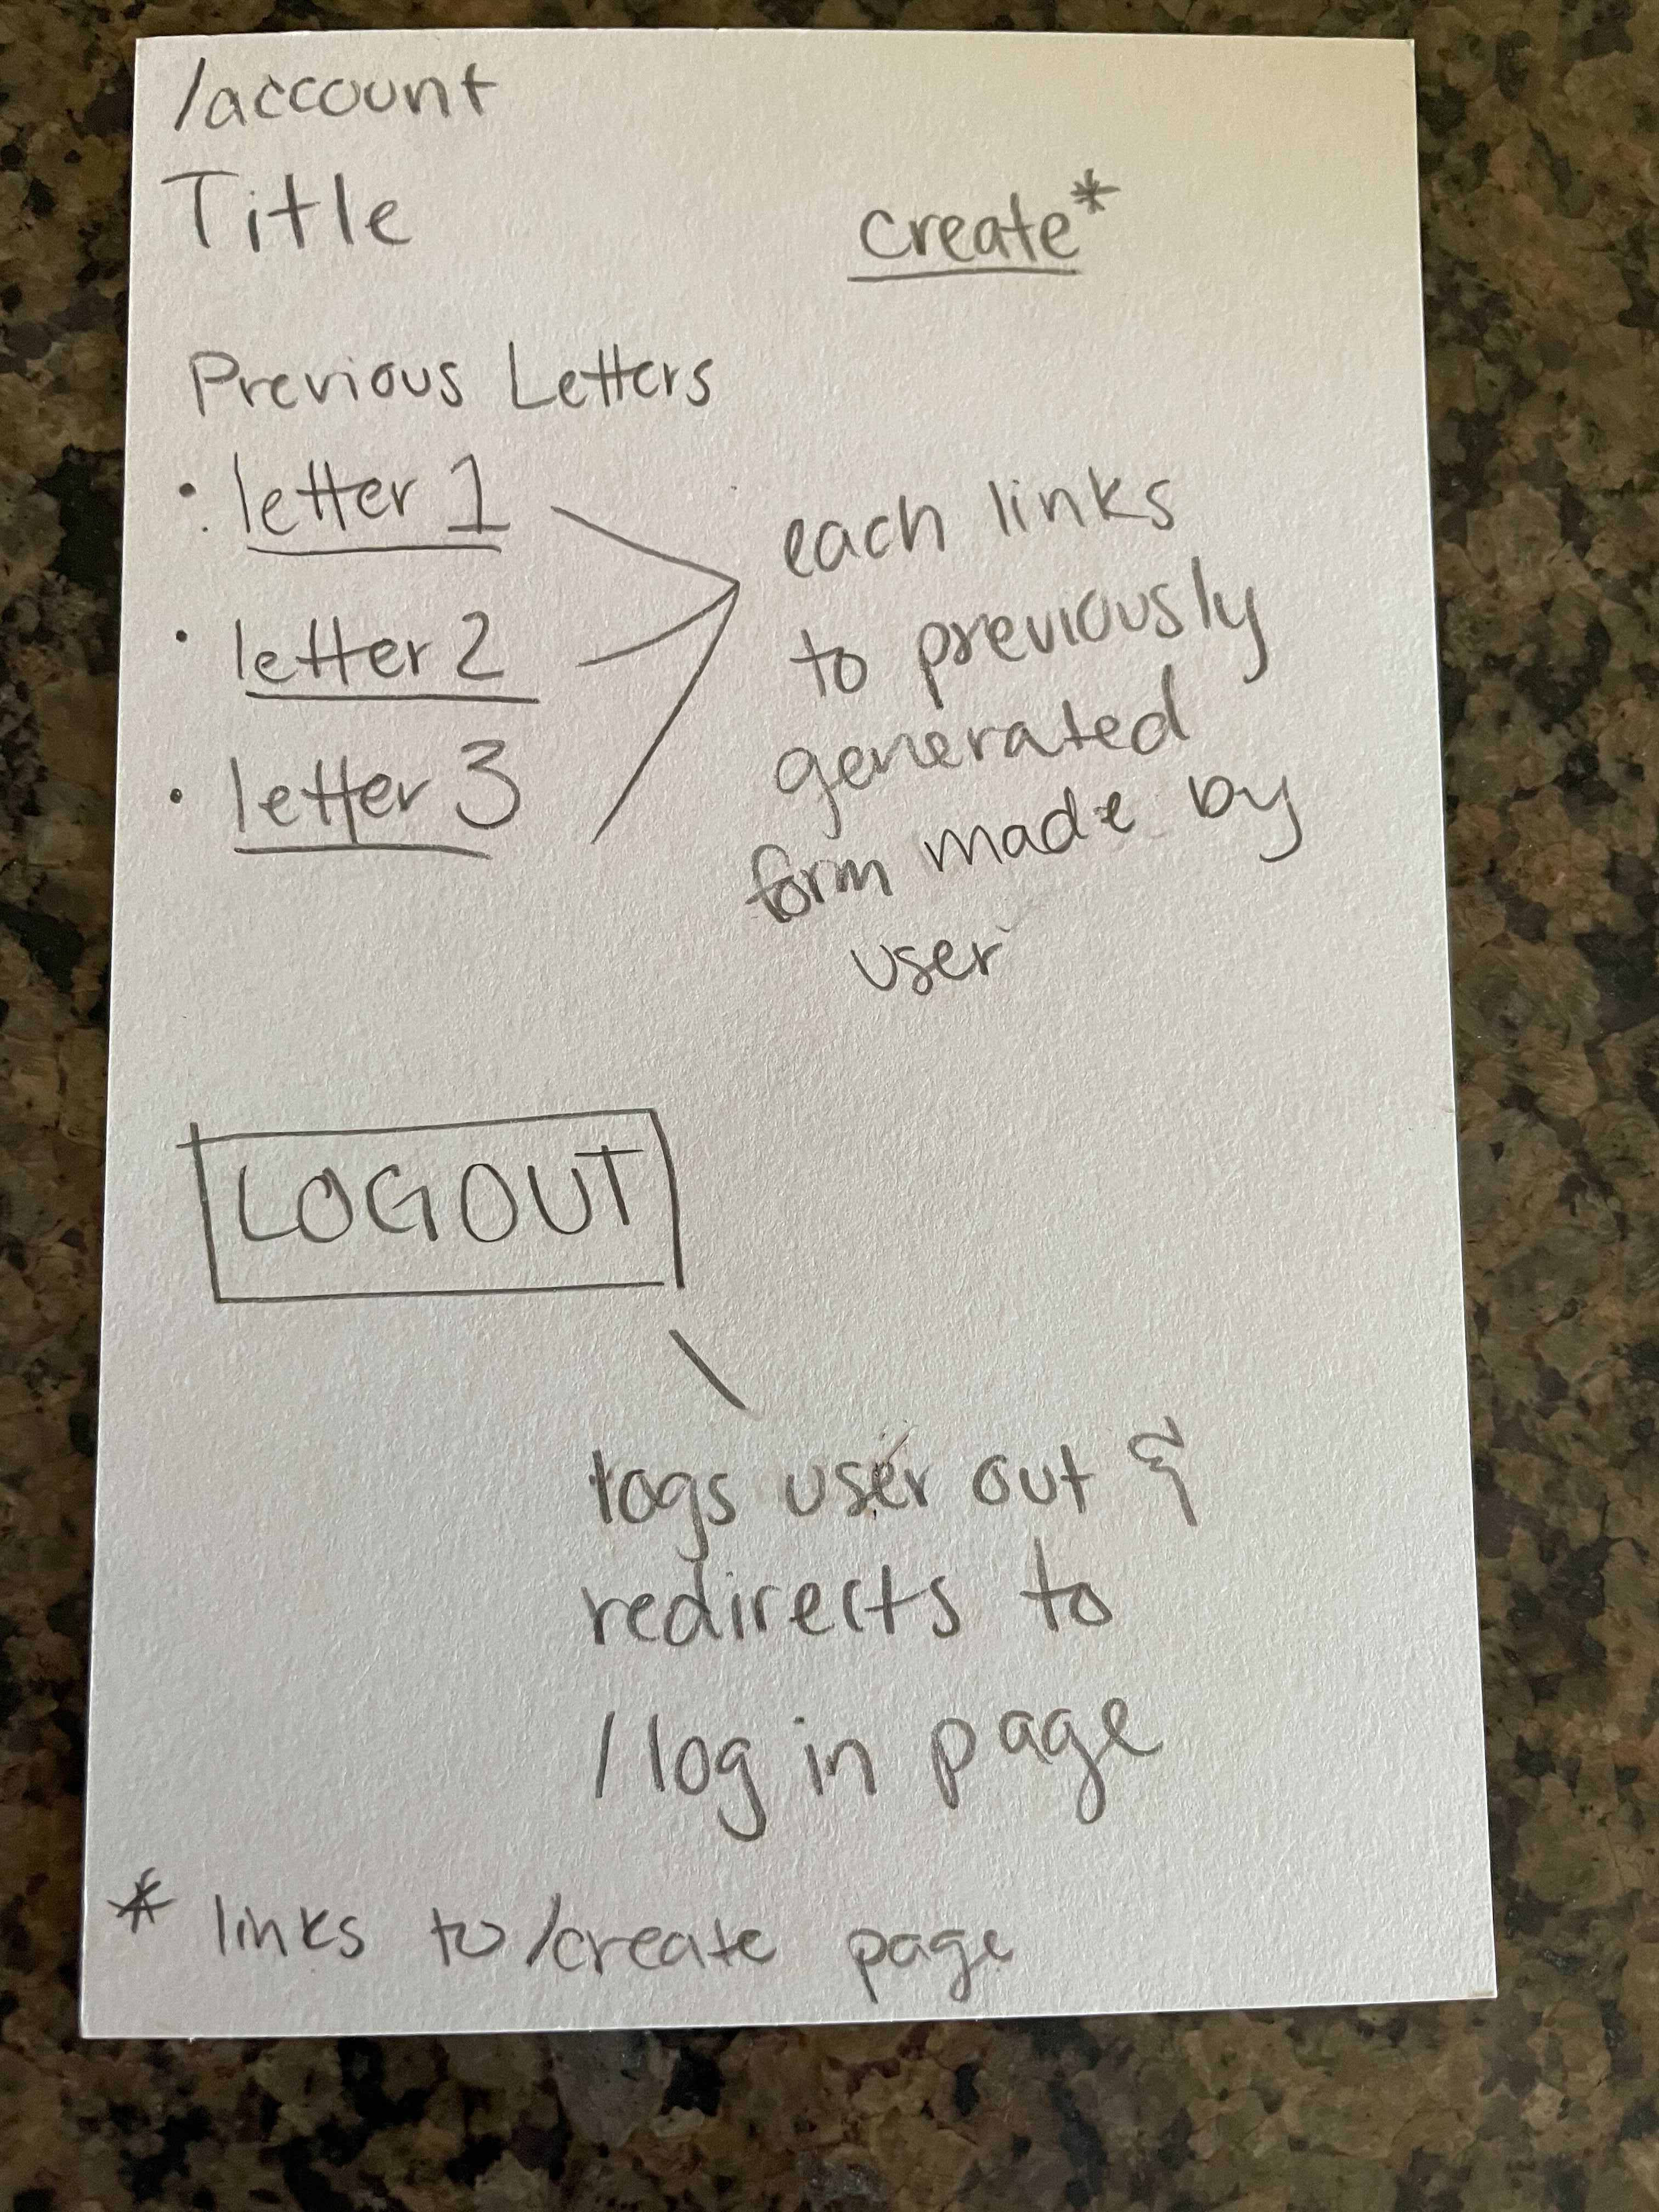 /account
Title
create*
Previous Letters
• letter 1
• letter 2
• letter 3
each links
to previously
generated
form made by
user
LOGOUT
logs user out &
redirects to
/log in page
* links to /create page